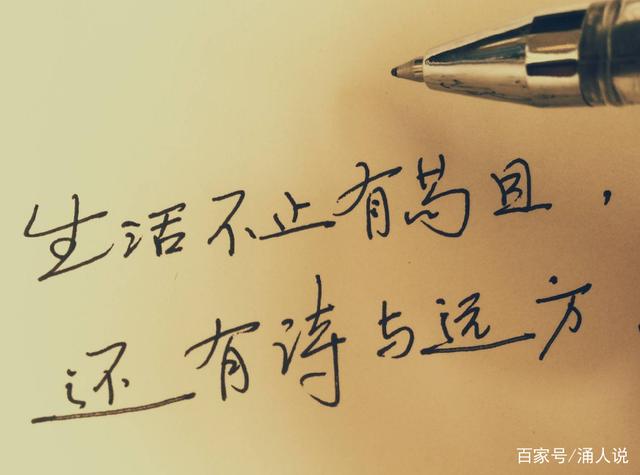 生活不止有苟且，
还有诗与远方
百家号/涌人说